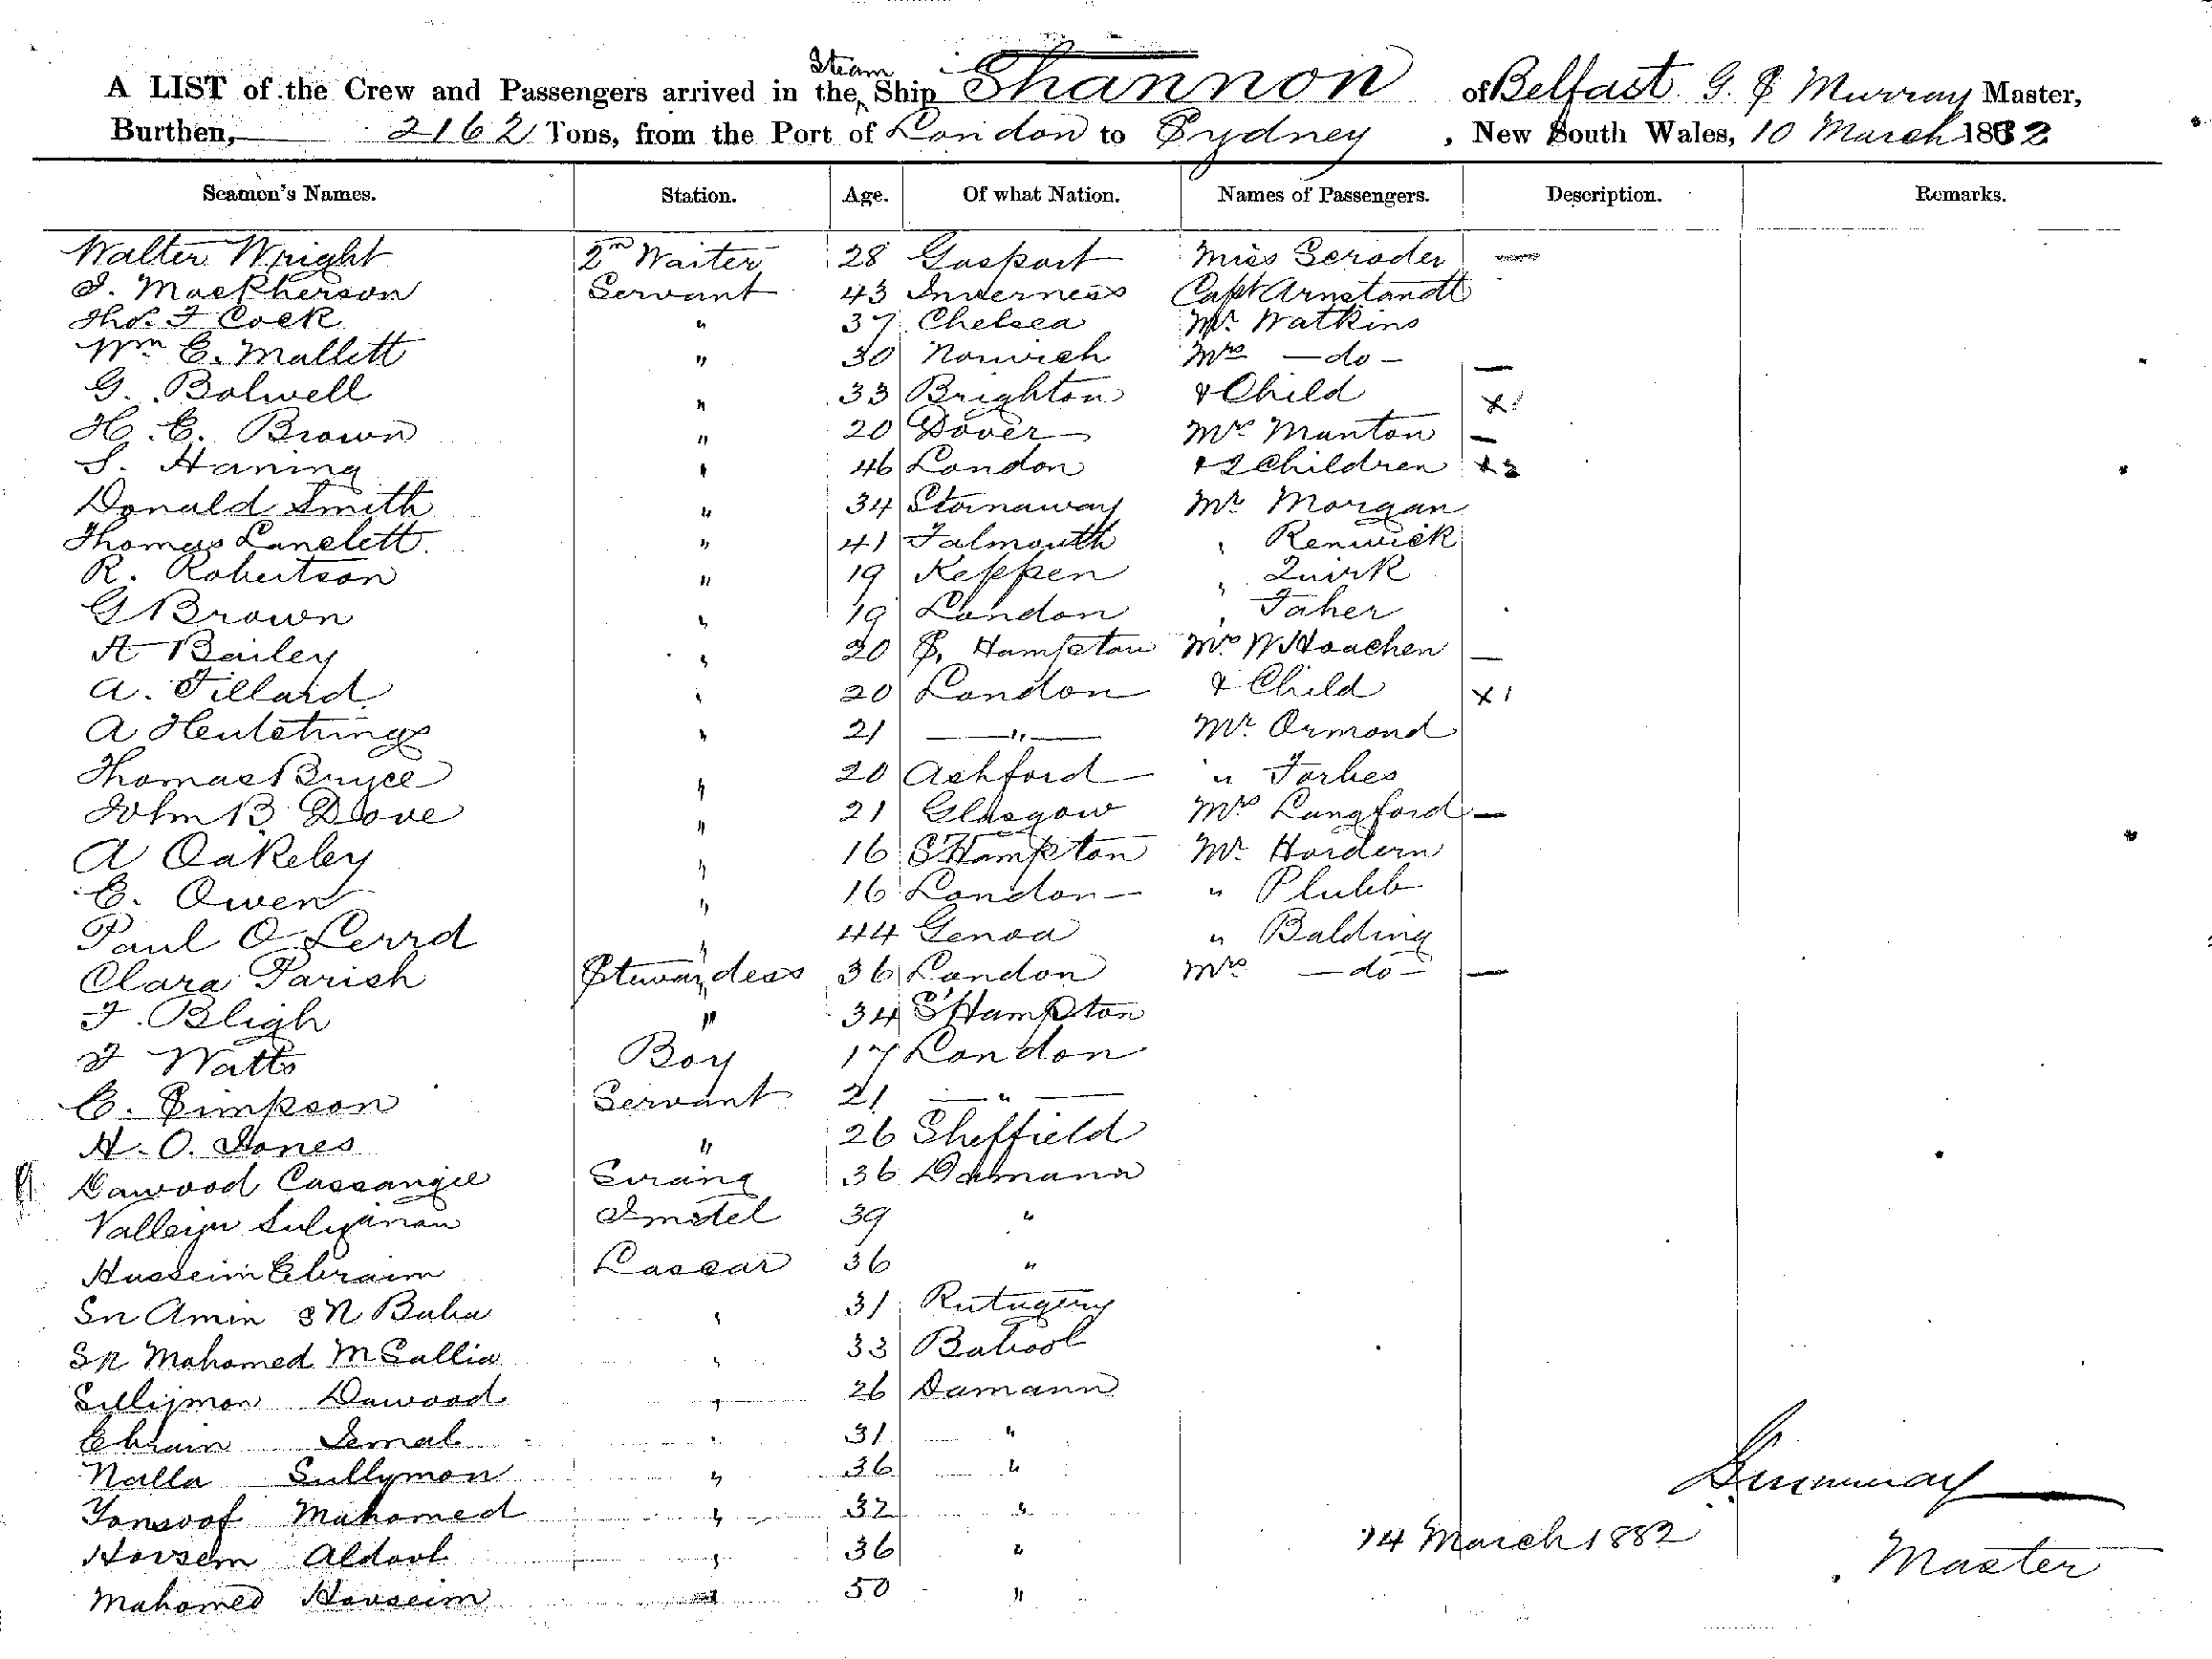 A LIST of the Crew and Passengers arrived in the Steam Ship Shannon of Belfast G. S Murray Master,
Burthen, 2162 Tons, from the Port of London to Sydney, New South Wales, 10 March 1882
Seamen's Names. Station. Age. Of what Nation. Names of Passengers. Description. Remarks.
Walter Wright 2nd Waiter 28 Gosport Miss Scroder —
J. MacPherson Servant 43 Inverness Capt Arnstandt
Thos. F Cock " 37 Chelsea Mr. Watkins
Wm E. Mallett " 30 Norwich Mrs — do —
G. Bolwell " 33 Brighton & Child x1
H. E. Brown " 20 Dover Mrs Manton —
S. Haning " 46 London & 2 Children x2
Donald Smith " 34 Stornaway Mr Morgan
Thomas Lanclett " 41 Falmouth " Renwick
R. Robertson " 19 Keppen " Quirk
G Brown " 19 London " Faher
A Bailey " 20 S. Hampton Mrs —
A. Tillard " 20 London & Child x1
A " 21 — " — Mr Ormond
Thomas Bryce " 20 Ashford " Forbes
John B Dove " 21 Glasgow Mrs Langford —
A Oakeley " 16 S'Hampton Mr. Hordern
E. Owen " 16 London " Plubb
Paul O Lerrd " 44 Genoa " Balding
Clara Parish Stewardess 36 London Mrs — do — —
F. Bligh " 34 S'Hampton
J Watts Boy 17 London
C. Simpson Servant 21 — " —
H. O. Jones " 26 Sheffield
Dawood Cassangie Serang 36 Damann
Valleijn Sulijman 39 "
Husseim Ebraim Lascar 36 "
Sn Amin SN Baba " 31 Rutugery
Sn Mahomed M Sallia " 33
Sullijmon Dawood " 26 Damann
Ebraim Ismal " 31 "
Nalla Sullymon " 36 "
Yonsoof Mahomed " 32 "
Hovsem " 36 "
Mahomed Hovseim " 50 "
GSMurray
14 March 1882
Master